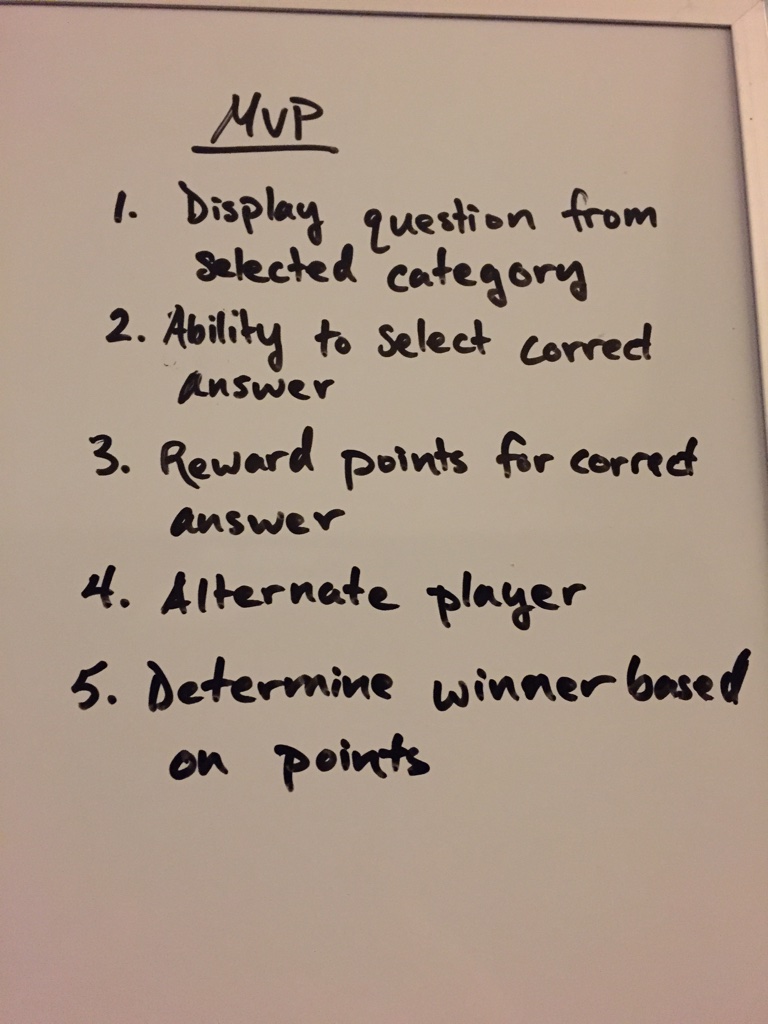 MVP
1. Display question from
selected category
2. Ability to select correct
answer
3. Reward points for correct
answer
4. Alternate player
5. Determine winner based
on points